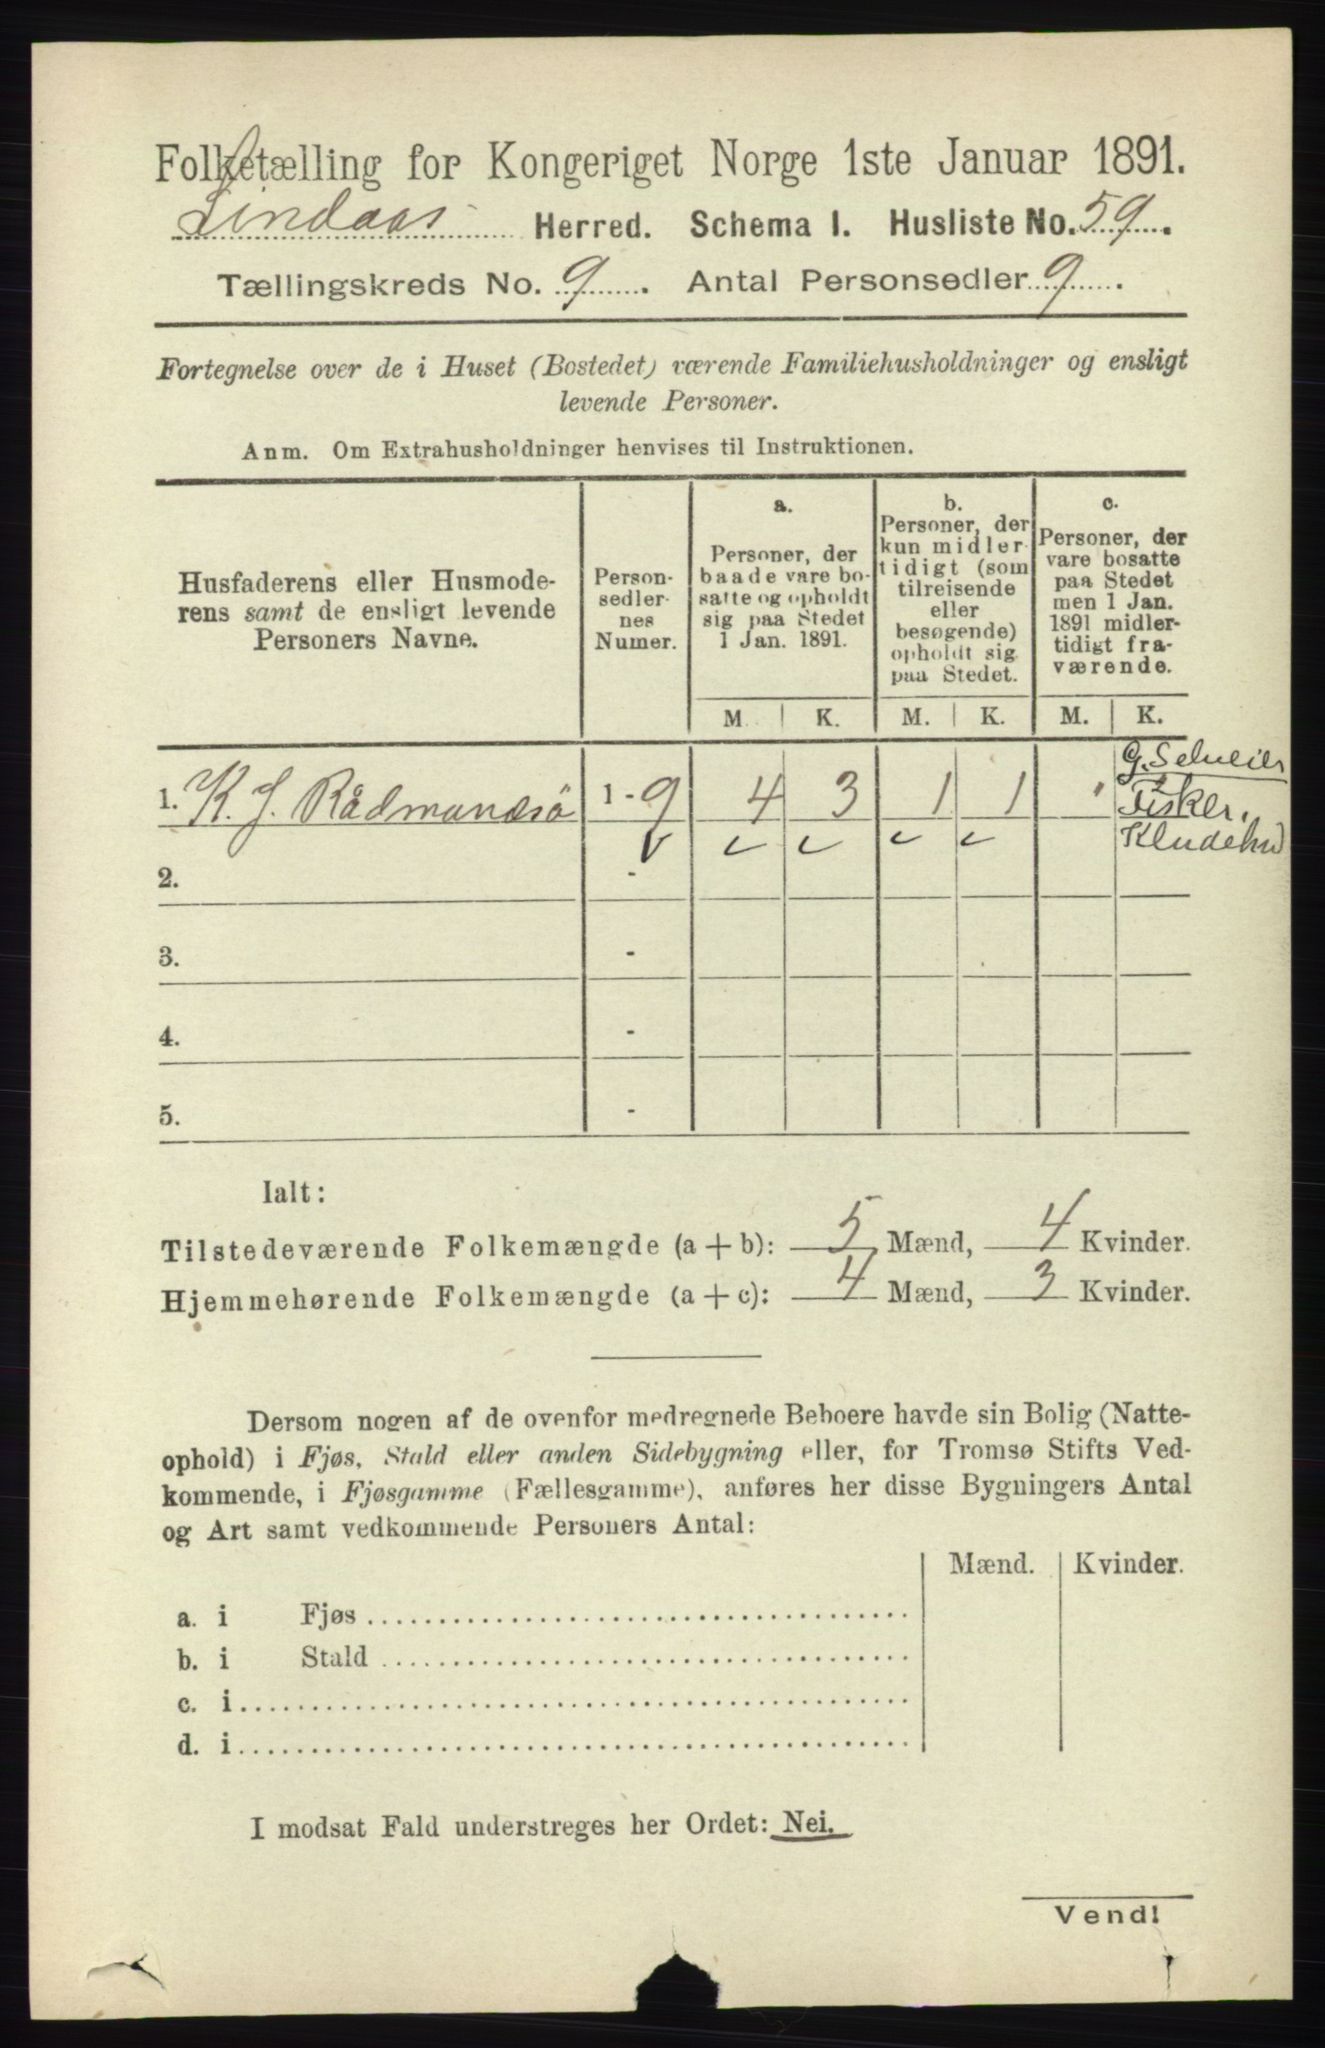 Folketælling for Kongeriget Norge 1ste Januar 1891.
Lindaas Herred. Schema I. Husliste No. 59.
Tællingskreds No. 9. Antal Personsedler 9.
Fortegnelse over de i Huset (Bostedet) værende Familiehusholdninger og ensligt
levende Personer.
Anm. Om Extrahusholdninger henvises til Instruktionen.
Husfaderens eller Husmode-
rens samt de ensligt levende
Personers Navne.
Person-
sedler-
nes
Numer.
a.
Personer, der
baade vare bo-
satte og opholdt
sig paa Stedet
1 Jan. 1891.
b.
Personer, der
kun midler-
tidigt (som
tilreisende
eller
besøgende)
opholdt sig
paa Stedet.
c.
Personer, der
vare bosatte
paa Stedet
men 1 Jan.
1891 midler-
tidigt fra-
værende.
M. K. M. K. M. K.
G. Selveier
Fisker,
1. K. J. Rådmandsö 1 - 9 4 3 1 1
2. -
3. -
4. -
5. -
Ialt:
Tilstedeværende Folkemængde (a + b): 5 Mænd, 4 Kvinder.
Hjemmehørende Folkemængde (a + c): 4 Mænd, 3 Kvinder.
Dersom nogen af de ovenfor medregnede Beboere havde sin Bolig (Natte-
ophold) i Fjøs, Stald eller anden Sidebygning eller, for Tromsø Stifts Ved-
kommende, i Fjøsgamme (Fællesgamme), anføres her disse Bygningers Antal
og Art samt vedkommende Personers Antal:
Mænd. Kvinder.
a. i Fjøs
b. i Stald
c. i
d. i
I modsat Fald understreges her Ordet: Nei.
Vend!